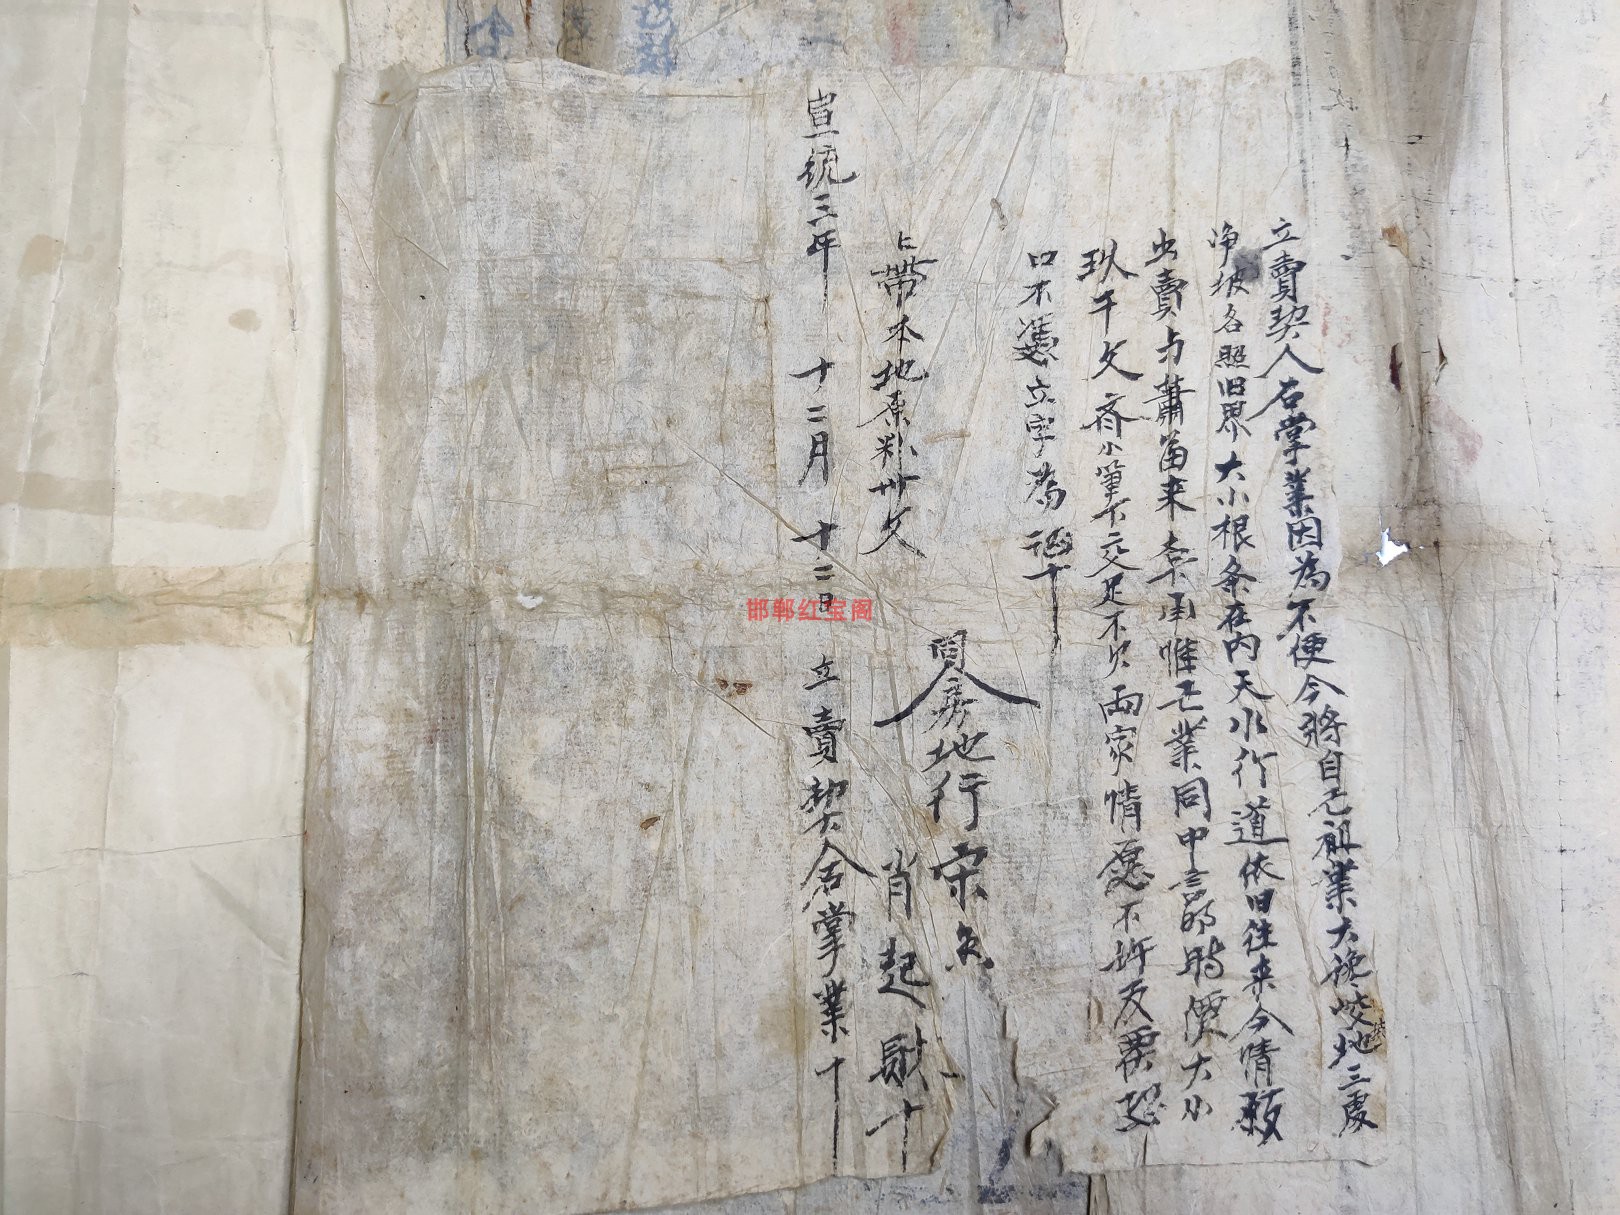 立賣契人石掌業因為不便今將自己祖業大
地三處
净坡各照旧界大小根条在内天水行道依旧往来今情愿
出賣与蕭富来 業同中言 時價大小
玖千文 齐小筆下交足不欠兩家情愿不许反
口不憑立字為证十
上帶本地原粮卅文
同
人
房地行宋
肖起 十
宣統三年 十二月 十二日 立賣契人石掌業十
邯郸红宝阁